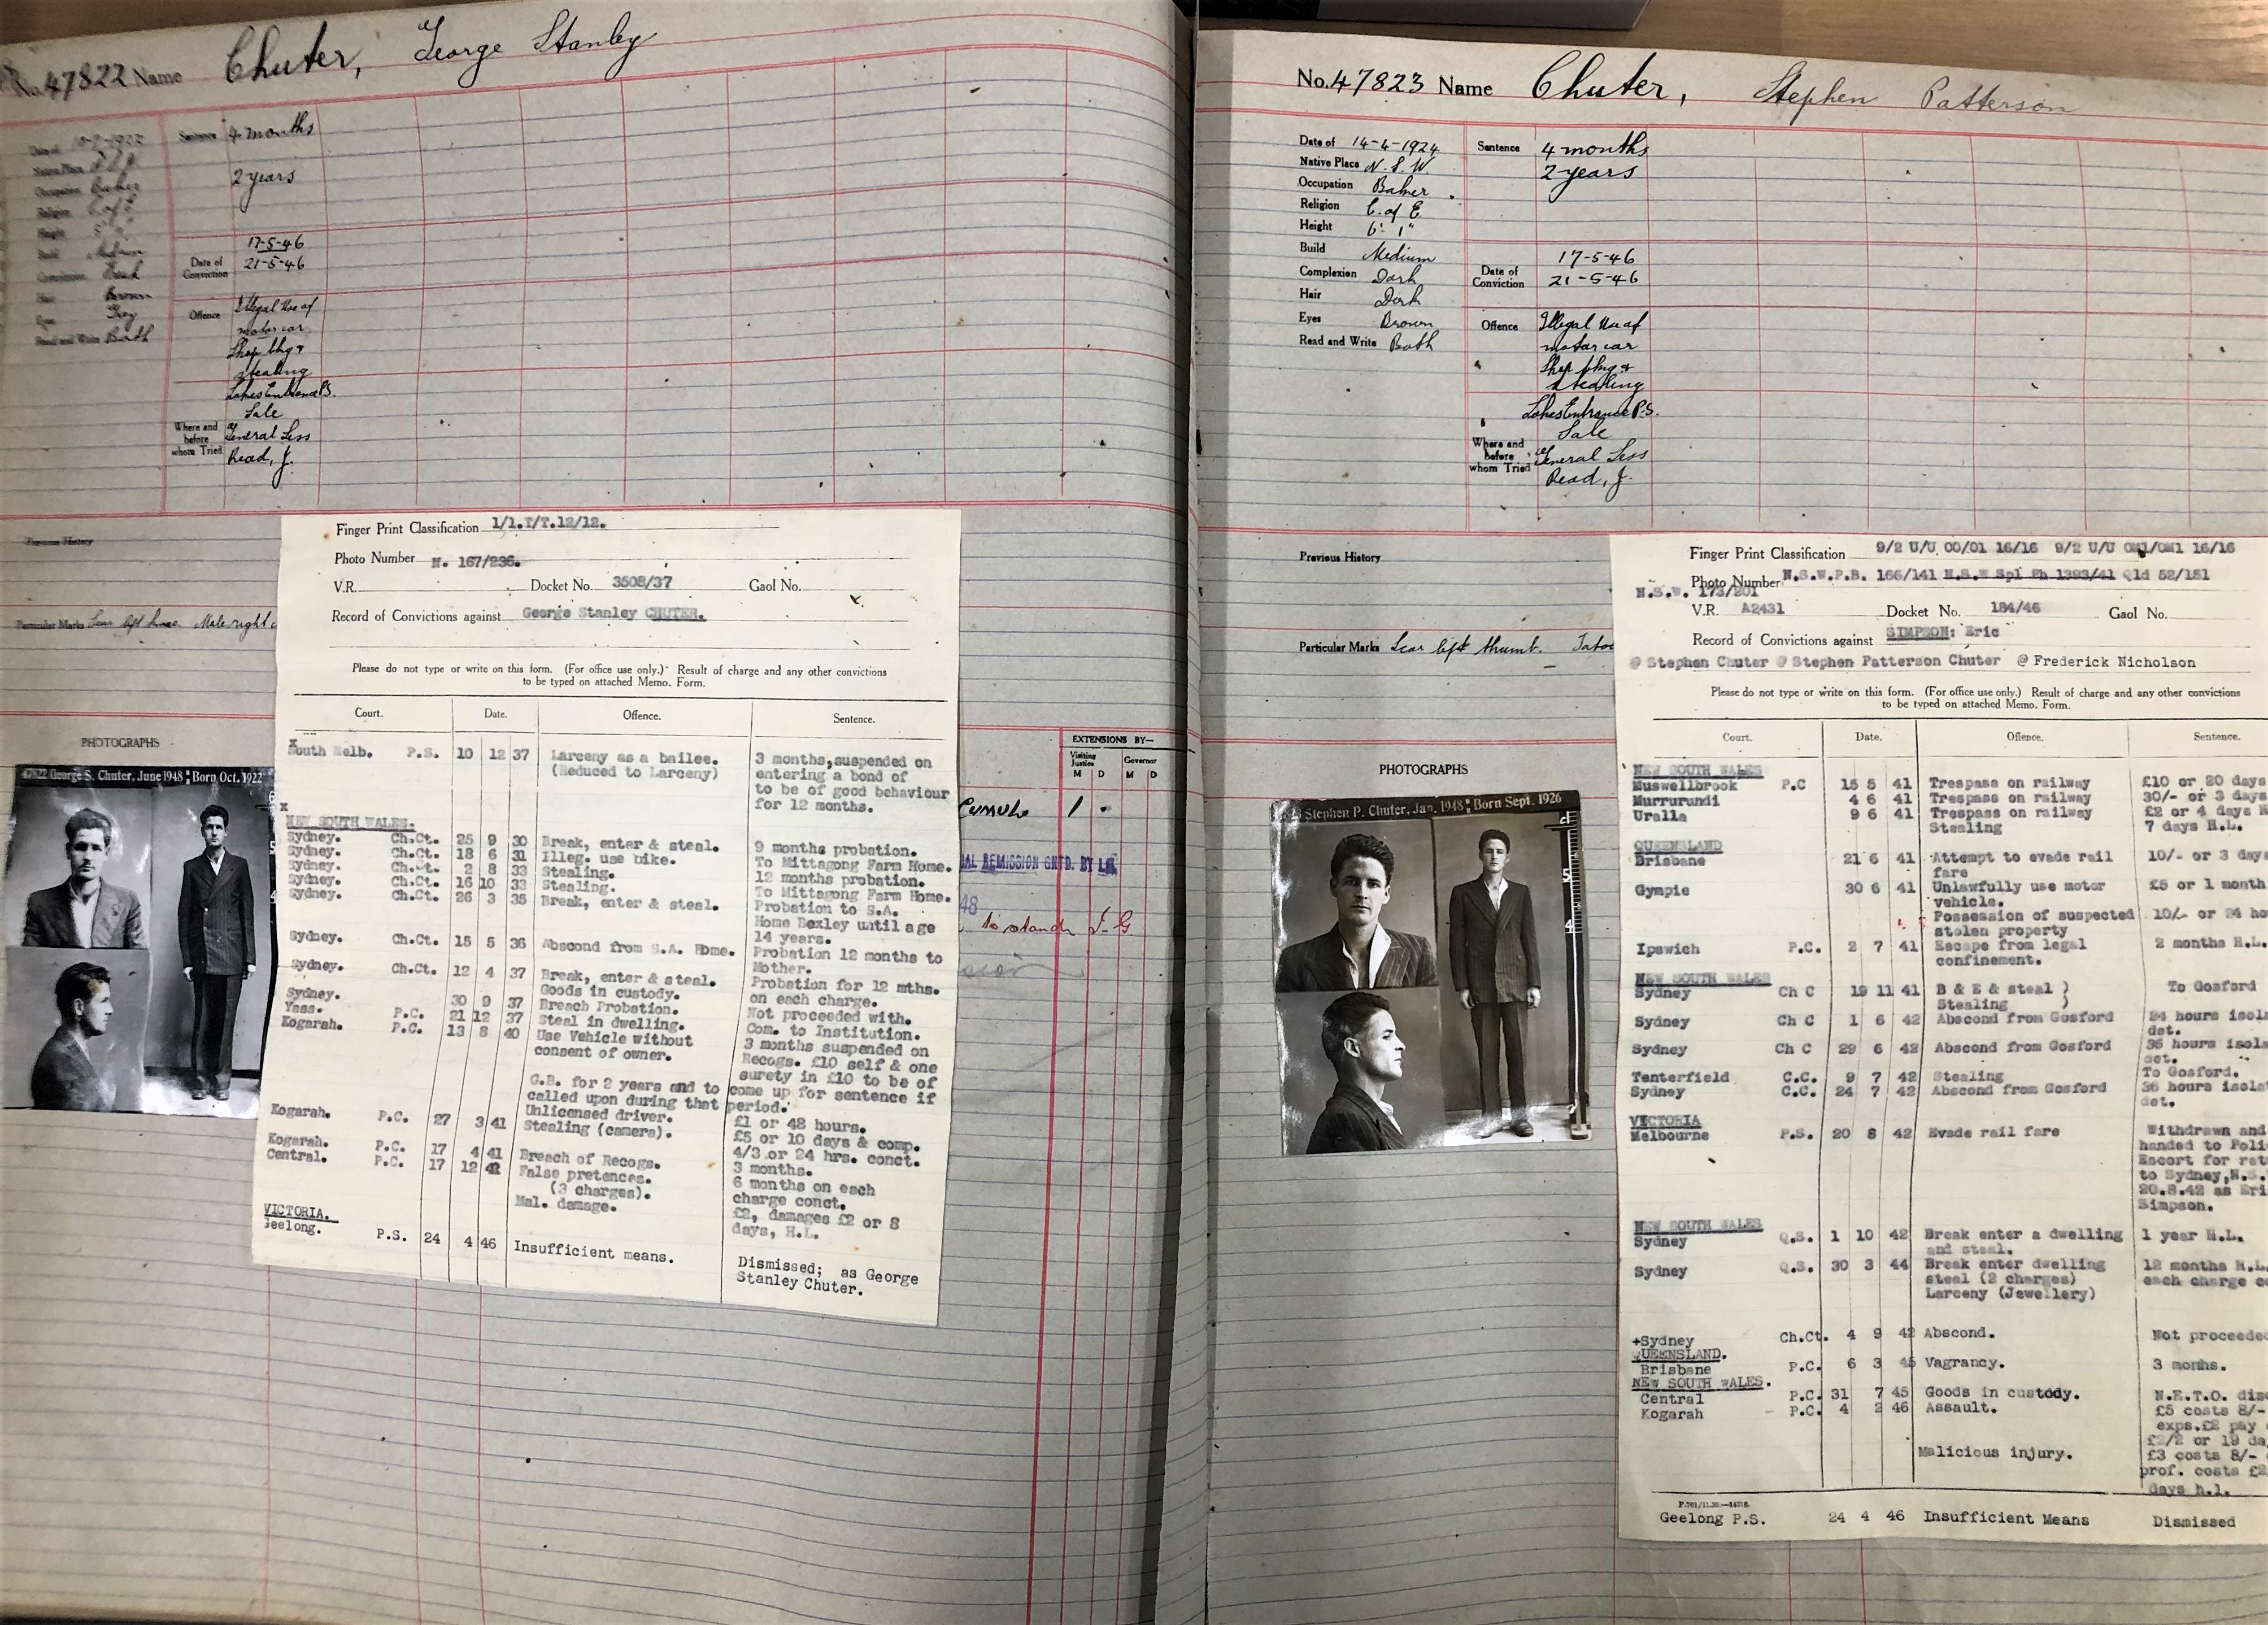 No. 47822 Name Chuter, George Stanley
Date of 10-9-1922
Native Place
Occupation Baker
Religion C of E
Height
Build Medium
Complexion
Hair Brown
Eyes Grey
Read and Write Both
Sentence 4 months
2 years
Date of Conviction 17-5-46
21-5-46
Offence Illegal Use of
motor car
Shop bkg &
stealing
Where and before whom Tried Lakes Entrance P.S.
Sale
General Sess
Read, J.
Previous History
Particular Marks Scar left knee. Mole right
PHOTOGRAPHS
47822 George S. Chuter, June 1948 Born Oct. 1922
EXTENSIONS BY—
Visiting Justice Governor
M D M D
Cumula 1 .
AL REMISSION GNTD. BY
48
to stand I.G.
Finger Print Classification 1/1.T/T.12/12.
Photo Number N. 167/236.
V.R. Docket No. 3508/37 Gaol No.
Record of Convictions against George Stanley CHUTER.
Please do not type or write on this form. (For office use only.) Result of charge and any other convictions
to be typed on attached Memo. Form.
Court. Date. Offence. Sentence.
South Melb. P.S. 10 12 37 Larceny as a bailee. 3 months, suspended on
(Reduced to Larceny) entering a bond of
to be of good behaviour
for 12 months.
x
NEW SOUTH WALES.
Sydney. Ch.Ct. 25 9 30 Break, enter & steal. 9 months probation.
Sydney. Ch.Ct. 18 6 31 Illeg. use bike. To Mittagong Farm Home.
Sydney. Ch.Ct. 2 8 33 Stealing. 12 months probation.
Sydney. Ch.Ct. 16 10 33 Stealing. To Mittagong Farm Home.
Sydney. Ch.Ct. 26 3 35 Break, enter & steal. Probation to S.A.
Home Bexley until age
14 years.
Sydney. Ch.Ct. 15 5 36 Abscond from S.A. Home. Probation 12 months to
Mother.
Sydney. Ch.Ct. 12 4 37 Break, enter & steal. Probation for 12 mths.
Goods in custody. on each charge.
Sydney. 30 9 37 Breach Probation. Not proceeded with.
Yass. P.C. 21 12 37 Steal in dwelling. Com. to Institution.
Kogarah. P.C. 13 8 40 Use Vehicle without 3 months suspended on
consent of owner. Recogs. £10 self & one
surety in £10 to be of
G.B. for 2 years and to come up for sentence if
called upon during that period.
Kogarah. P.C. 27 3 41 Unlicensed driver. £1 or 48 hours.
Stealing (camera). £5 or 10 days & comp.
4/3 or 24 hrs. conct.
Kogarah. P.C. 17 4 41 Breach of Recogs. 3 months.
Central. P.C. 17 12 41 False pretences. 6 months on each
(3 charges). charge conct.
Mal. damage. £2, damages £2 or 8
days, H.L.
VICTORIA.
Geelong. P.S. 24 4 46 Insufficient means. Dismissed; as George
Stanley Chuter.
No. 47823 Name Chuter, Stephen Patterson
Date of 14-4-1924
Native Place N.S.W.
Occupation Baker
Religion C. of E
Height 6' 1"
Build Medium
Complexion Dark
Hair Dark
Eyes Brown
Read and Write Both
Sentence 4 months
2 years
Date of Conviction 17-5-46
21-5-46
Offence Illegal Use of
motor car
Shop bkg &
stealing
Where and before whom Tried Lakes Entrance P.S.
Sale
General Sess
Read, J.
Previous History
Particular Marks Scar left thumb. Tatoo
PHOTOGRAPHS
23 Stephen P. Chuter, Jan. 1948 Born Sept. 1926
Finger Print Classification 9/2 U/U 00/01 16/16 9/2 U/U OM1/OM1 16/16
Photo Number N.S.W.P.B. 166/141 N.S.W Spl Ph 1393/41 Qld 52/151
N.S.W. 173/201
V.R. A2431 Docket No. 184/46 Gaol No.
Record of Convictions against SIMPSON: Eric
@ Stephen Chuter @ Stephen Patterson Chuter @ Frederick Nicholson
Please do not type or write on this form. (For office use only.) Result of charge and any other convictions
to be typed on attached Memo. Form.
Court. Date. Offence. Sentence.
NEW SOUTH WALES
Muswellbrook P.C 15 5 41 Trespass on railway £10 or 20 days
Murrurundi 4 6 41 Trespass on railway 30/- or 3 days
Uralla 9 6 41 Trespass on railway £2 or 4 days H
Stealing 7 days H.L.
QUEENSLAND
Brisbane 21 6 41 Attempt to evade rail 10/- or 3 days
fare
Gympie 30 6 41 Unlawfully use motor £5 or 1 month
vehicle.
Possession of suspected 10/- or 24 ho
stolen property
Ipswich P.C. 2 7 41 Escape from legal 2 months H.L.
confinement.
NEW SOUTH WALES
Sydney Ch C 19 11 41 B & E & steal ) To Gosford
Stealing )
Sydney Ch C 1 6 42 Abscond from Gosford 24 hours isola
det.
Sydney Ch C 29 6 42 Abscond from Gosford 36 hours isola
det.
Tenterfield C.C. 9 7 42 Stealing To Gosford.
Sydney C.C. 24 7 42 Abscond from Gosford 36 hours isola
det.
VICTORIA
Melbourne P.S. 20 8 42 Evade rail fare Withdrawn and
handed to Poli
Escort for ret
to Sydney, N.S.
20.8.42 as Eri
Simpson.
NEW SOUTH WALES
Sydney Q.S. 1 10 42 Break enter a dwelling 1 year H.L.
and steal.
Sydney Q.S. 30 3 44 Break enter dwelling 12 months H.L.
steal (2 charges) each charge co
Larceny (Jewellery)
+Sydney Ch.Ct. 4 9 42 Abscond. Not proceede
QUEENSLAND.
Brisbane P.C. 6 3 45 Vagrancy. 3 months.
NEW SOUTH WALES.
Central P.C. 31 7 45 Goods in custody. N.E.T.O. dis
Kogarah P.C. 4 2 46 Assault. £5 costs 8/-
exps.£2 pay
£2/2 or 19 da
Malicious injury. £3 costs 8/-
prof. costs £2
days h.l.
Geelong P.S. 24 4 46 Insufficient Means Dismissed